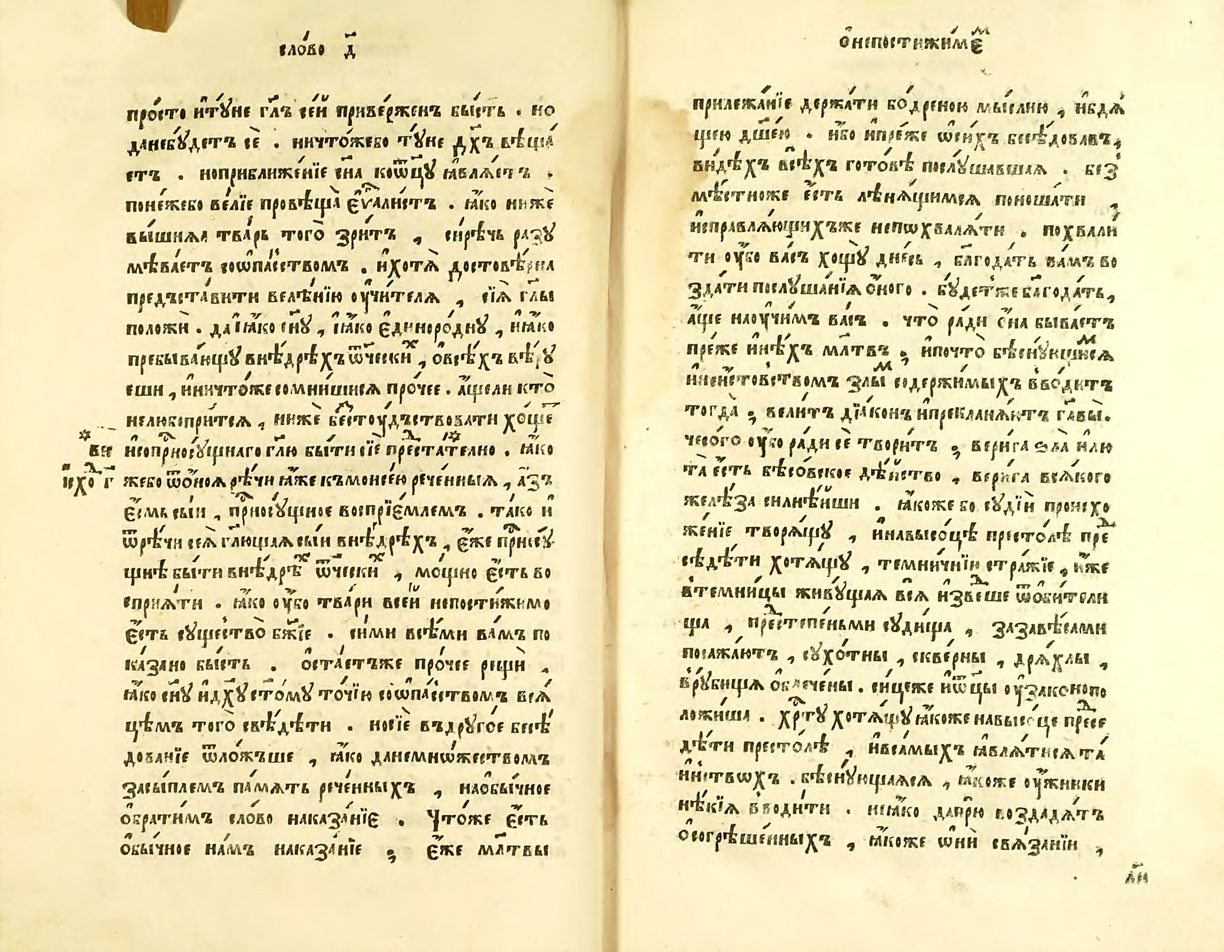 сло́во д҃
про́сто и҆тꙋ́не гл҃ъ се́й приве́рженъ бы́сть . но
данебꙋ́детъ сѐ . ничто́жебо тꙋ́не дх҃ъ вѣща́
етъ . ноприближе́нїе сн҃а коѿцꙋ̀ ꙗ҆вля́етъ .
поне́жебо ве́лїе провѣща̀ є҆ѵⷢ҇али́стъ . ꙗ҆́ко ниже
вы́шнѧѧ тва́рь того̀ зри́тъ , си́рѣчь разꙋ
мѣва́етъ соѡпа́сствомъ . и҆хотѧ̀ достовѣ́рна
предъста́вити велѣ́нїю ᲂу҆чи́телѧ , сїѧ̀ гл҃ы
положѝ . да ꙗ҆́ко сн҃ꙋ , ꙗ҆́ко є҆диноро́днꙋ , и҆ꙗ҆́ко
пребыва́ющꙋ внѣ́дрѣхъ ѿческиⷯ , ѡ҆всѣ́хъ вѣ́рꙋ
еши , и҆ничто́же сомни́шисѧ про́чее . а҆́щели кто̀
нелюбопри́тсѧ , нижѐ бестоу́дьствовати хо́ще
и҆соприсꙋ́щнаго гл҃ю бы́ти сїѐ преⷣста́телно . ꙗ҆́ко
жебо ѿо́ноѧ рѣ́чи ꙗ҆́же къмоисе́ю рече́нныѧ , а҆́зъ
є҆́смь сы́и , приⷭ҇носꙋ́щное воспрїе́млемъ . та́ко и
ѿрѣ́чи сеѧ̀ гл҃ющаѧ сы́и внѣ́дрѣхъ , є҆́же приⷭ҇нсꙋ́
щнѣ бы́ти внѣ́дрѣⷯ ѿческиⷯ , мо́щно є҆́сть во
спрїѧ́ти . ꙗ҆́ко ᲂу҆́бо тва́ри все́й непостижи́мо
є҆́сть сꙋщество̀ бж҃їе . си́ми всѣ́ми ва́мъ по
ка́зано бы́сть . ѡ҆ста́етъже про́чее рещѝ ,
ꙗ҆́ко сн҃ꙋ и҆дх҃ꙋ ст҃о́мꙋ то́чїи соѡпа́сствомъ всѧ́
цѣмъ того̀ свѣ́дѣти . носїѐ въдрꙋго́е бесѣ́
дованїе ѿло́жъше , ꙗ҆́ко данемно́жествомъ
засы́племъ па́мѧть рече́нныхъ , наѻ҆бы́чное
ѡ҆брати́мъ сло́во наказа́нїе . Что́же є҆́сть
ѻ҆бы́чное на́мъ наказа́нїе ; є҆́же мл҃твы
ѡ҆непостижи́мѣⷨ
прилежа́нїе держа́ти бо́дреною мы́слию , и҆бдѧ́
щею дш҃е́ю . и҆́бо и҆пре́же ѡ҆си́хъ бесѣ́довавъ,
ви́дѣхъ всѣ́хъ гото́вѣ послꙋ́шавшаѧ . без
мѣ́стноже є҆́сть лѣнѧ́щимсѧ поноша́ти ,
и҆справлѧ́ющихъже непохвалѧ́ти . похвали
ти ᲂу҆́бо ва́съ хощꙋ̀ дне́сь , бл҃года́ть ва́мъ во
зда́ти послꙋша́нїѧ ѻ҆́ного . бꙋ́детже бл҃года́ть,
а҆́ще наᲂу҆чи́мъ ва́съ . что̀ ра́ди ѻ҆на̀ быва́етъ
пре́же и҆нѣ́хъ мл҃твъ ; и҆почто̀ бѣснꙋ́ющиⷨсѧ
и҆неи́стовствомъ злы́ⷨ содержи́мыхъ вво́дитъ
тогда̀ ; вели́тъ дїа́конъ и҆преклонѧ́ютъ гла́вы.
чесого̀ ᲂу҆́бо ра́ди сѐ твори́тъ ; вери́га ѕла̀ и҆лю
та̀ є҆́сть бѣсо́вское дѣ́йство , вери́га всѧ́кого
желѣ́за силнѣ́йши . ꙗ҆́коже бо сꙋдїѝ происхо
жде́нїе творѧ́щꙋ , и҆навысо́цѣ престо́лѣ преⷣ
сѣдѣ́ти хотѧ́щꙋ , темни́чнїи стра́жїе , и҆́же
втемни́цы живꙋ́щаѧ всѧ̀ и҆зве́дше ѿоби́тели
ща , преⷣстепе́ньми сꙋди́ща , зазавѣ́сами
посажа́ютъ , сꙋхо́тны , скве́рны , дрѧ́хлы ,
врꙋ́бищѧ ѡ҆блече́ны . си́цеже и҆ѿцы̀ ᲂу҆законопо
ложи́ша . хрⷭ҇тꙋ̀ хотѧ́щꙋ ꙗ҆́коже навысо́це преⷣсе
дѣ́ти престо́лѣ , и҆вса́мыхъ ꙗ҆влѧ́тисѧ та́
и҆нствохъ . бѣснꙋ́ющаѧсѧ , ꙗ҆́коже ᲂу҆́жники
нѣ́кїѧ вводи́ти . неꙗ҆́ко дапрю̀ воздадѧ́тъ
ѻ҆согрѣше́нныхъ , ꙗ҆́коже ѻ҆нѝ свѧ́занїи ,